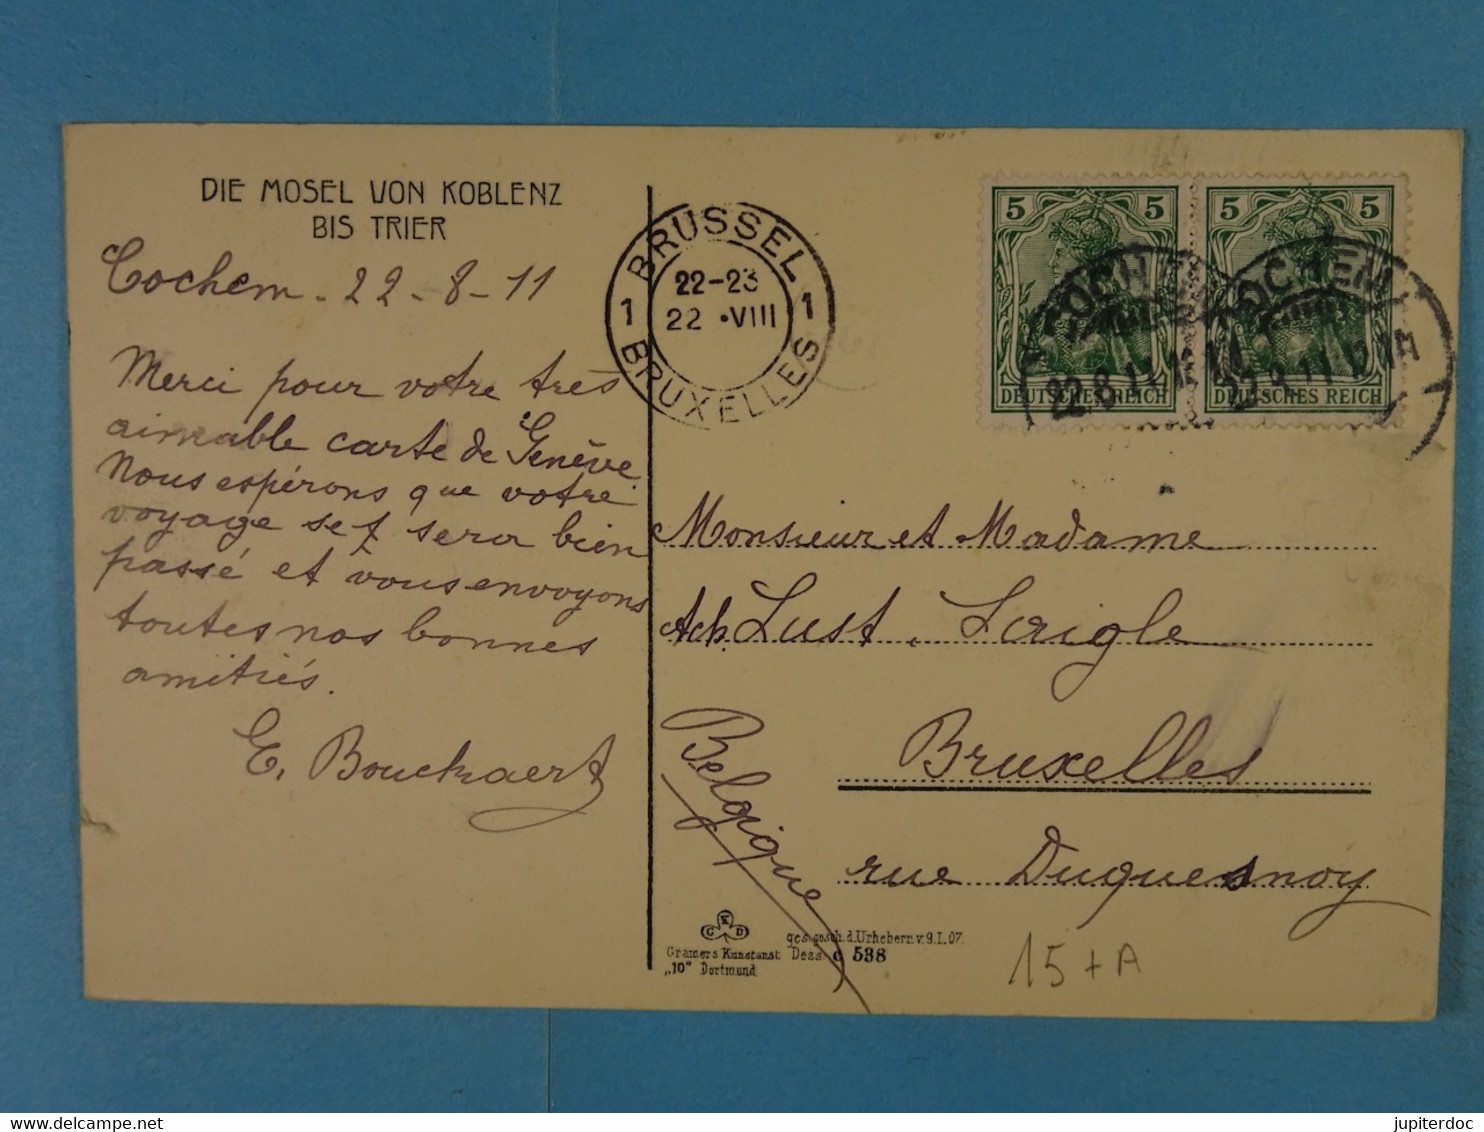 DIE MOSEL VON KOBLENZ
BIS TRIER
Cochem - 22 - 8 - 11
Merci pour votre très
aimable carte de Genève.
Nous espérons que votre
voyage set sera bien
passé et vous envoyons
toutes nos bonnes
amitiés.
E. Bouckaert
BRUSSEL
1 22-23 1
22 •VIII
BRUXELLES
5 5
DEUTSCHES REICH
5 5
DEUTSCHES REICH
COCHEM
22.8.11
COCHEM
22.8.11
Monsieur et Madame
Ach. Lust. Laigle
Bruxelles
Belgique
rue Duquesnoy
C K D
Cramers Kunstanst.
„10" Dortmund
ges. gesch. d. Urhebern v. 9. I. 07.
Dess. c 538
15 + A
jupiterdoc